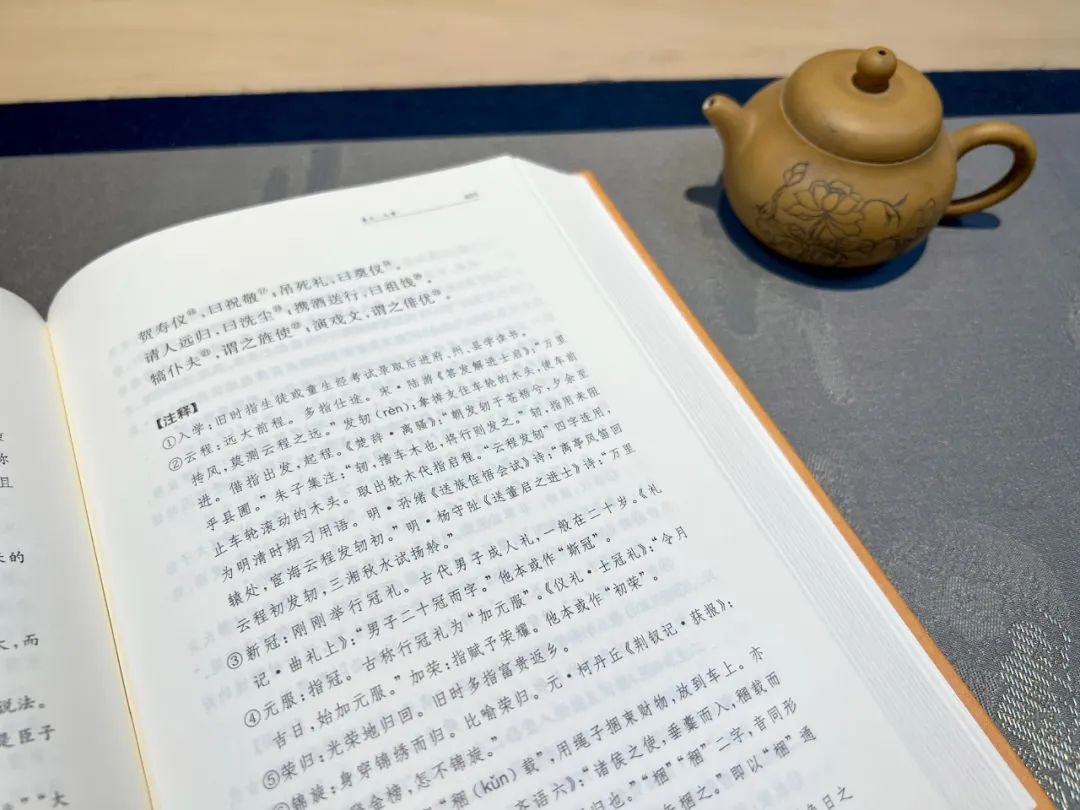 贺寿仪，曰祝敬；吊死礼，曰奠仪。
请人远归，曰洗尘；携酒送行，曰祖饯。
犒仆夫，谓之旌使；演戏文，谓之俳优。
【注释】
①入学：旧时指生徒或童生经考试录取后进府、州、县学读书。
②云程：远大前程。多指仕途。宋·陆游《答发解进士启》：“万里
抟风，莫测云程之远。”发轫（rèn）：拿掉支住车轮的木头，使车前
进。借指出发，起程。《楚辞·离骚》：“朝发轫于苍梧兮，夕余至
乎县圃。”朱子集注：“轫，搘车木也，将行则发之。”轫，指用来阻
止车轮滚动的木头。取出轮木代指启程。“云程发轫”四字连用，
为明清时期习用语。明·孙绪《送族侄悟会试》诗：“离亭风笛回
辕处，宦海云程发轫初。”明·杨守阯《送董启之进士》诗：“万里
云程初发轫，三湘秋水试扬舲。”
③新冠：刚刚举行冠礼。古代男子成人礼，一般在二十岁。《礼
记·曲礼上》：“男子二十冠而字。”他本或作“斯冠”。
④元服：指冠。古称行冠礼为“加元服”。《仪礼·士冠礼》：“令月
吉日，始加元服。”加荣：指赋予荣耀。他本或作“初荣”。
⑤荣归：光荣地归回。旧时多指富贵返乡。
锦旋：身穿锦绣而归。比喻荣归。元·柯丹丘《荆钗记·获报》：
登金榜，怎不锦旋。”
“稇（kǔn）载”，用绳子捆束财物，放到车上。亦
齐语六》：“诸侯之使，垂橐而入，稇载而
归也。”“梱”“稇”二字，音同形
车梱之。”即以“梱”通
的
大，而
说法。
是臣子
“大